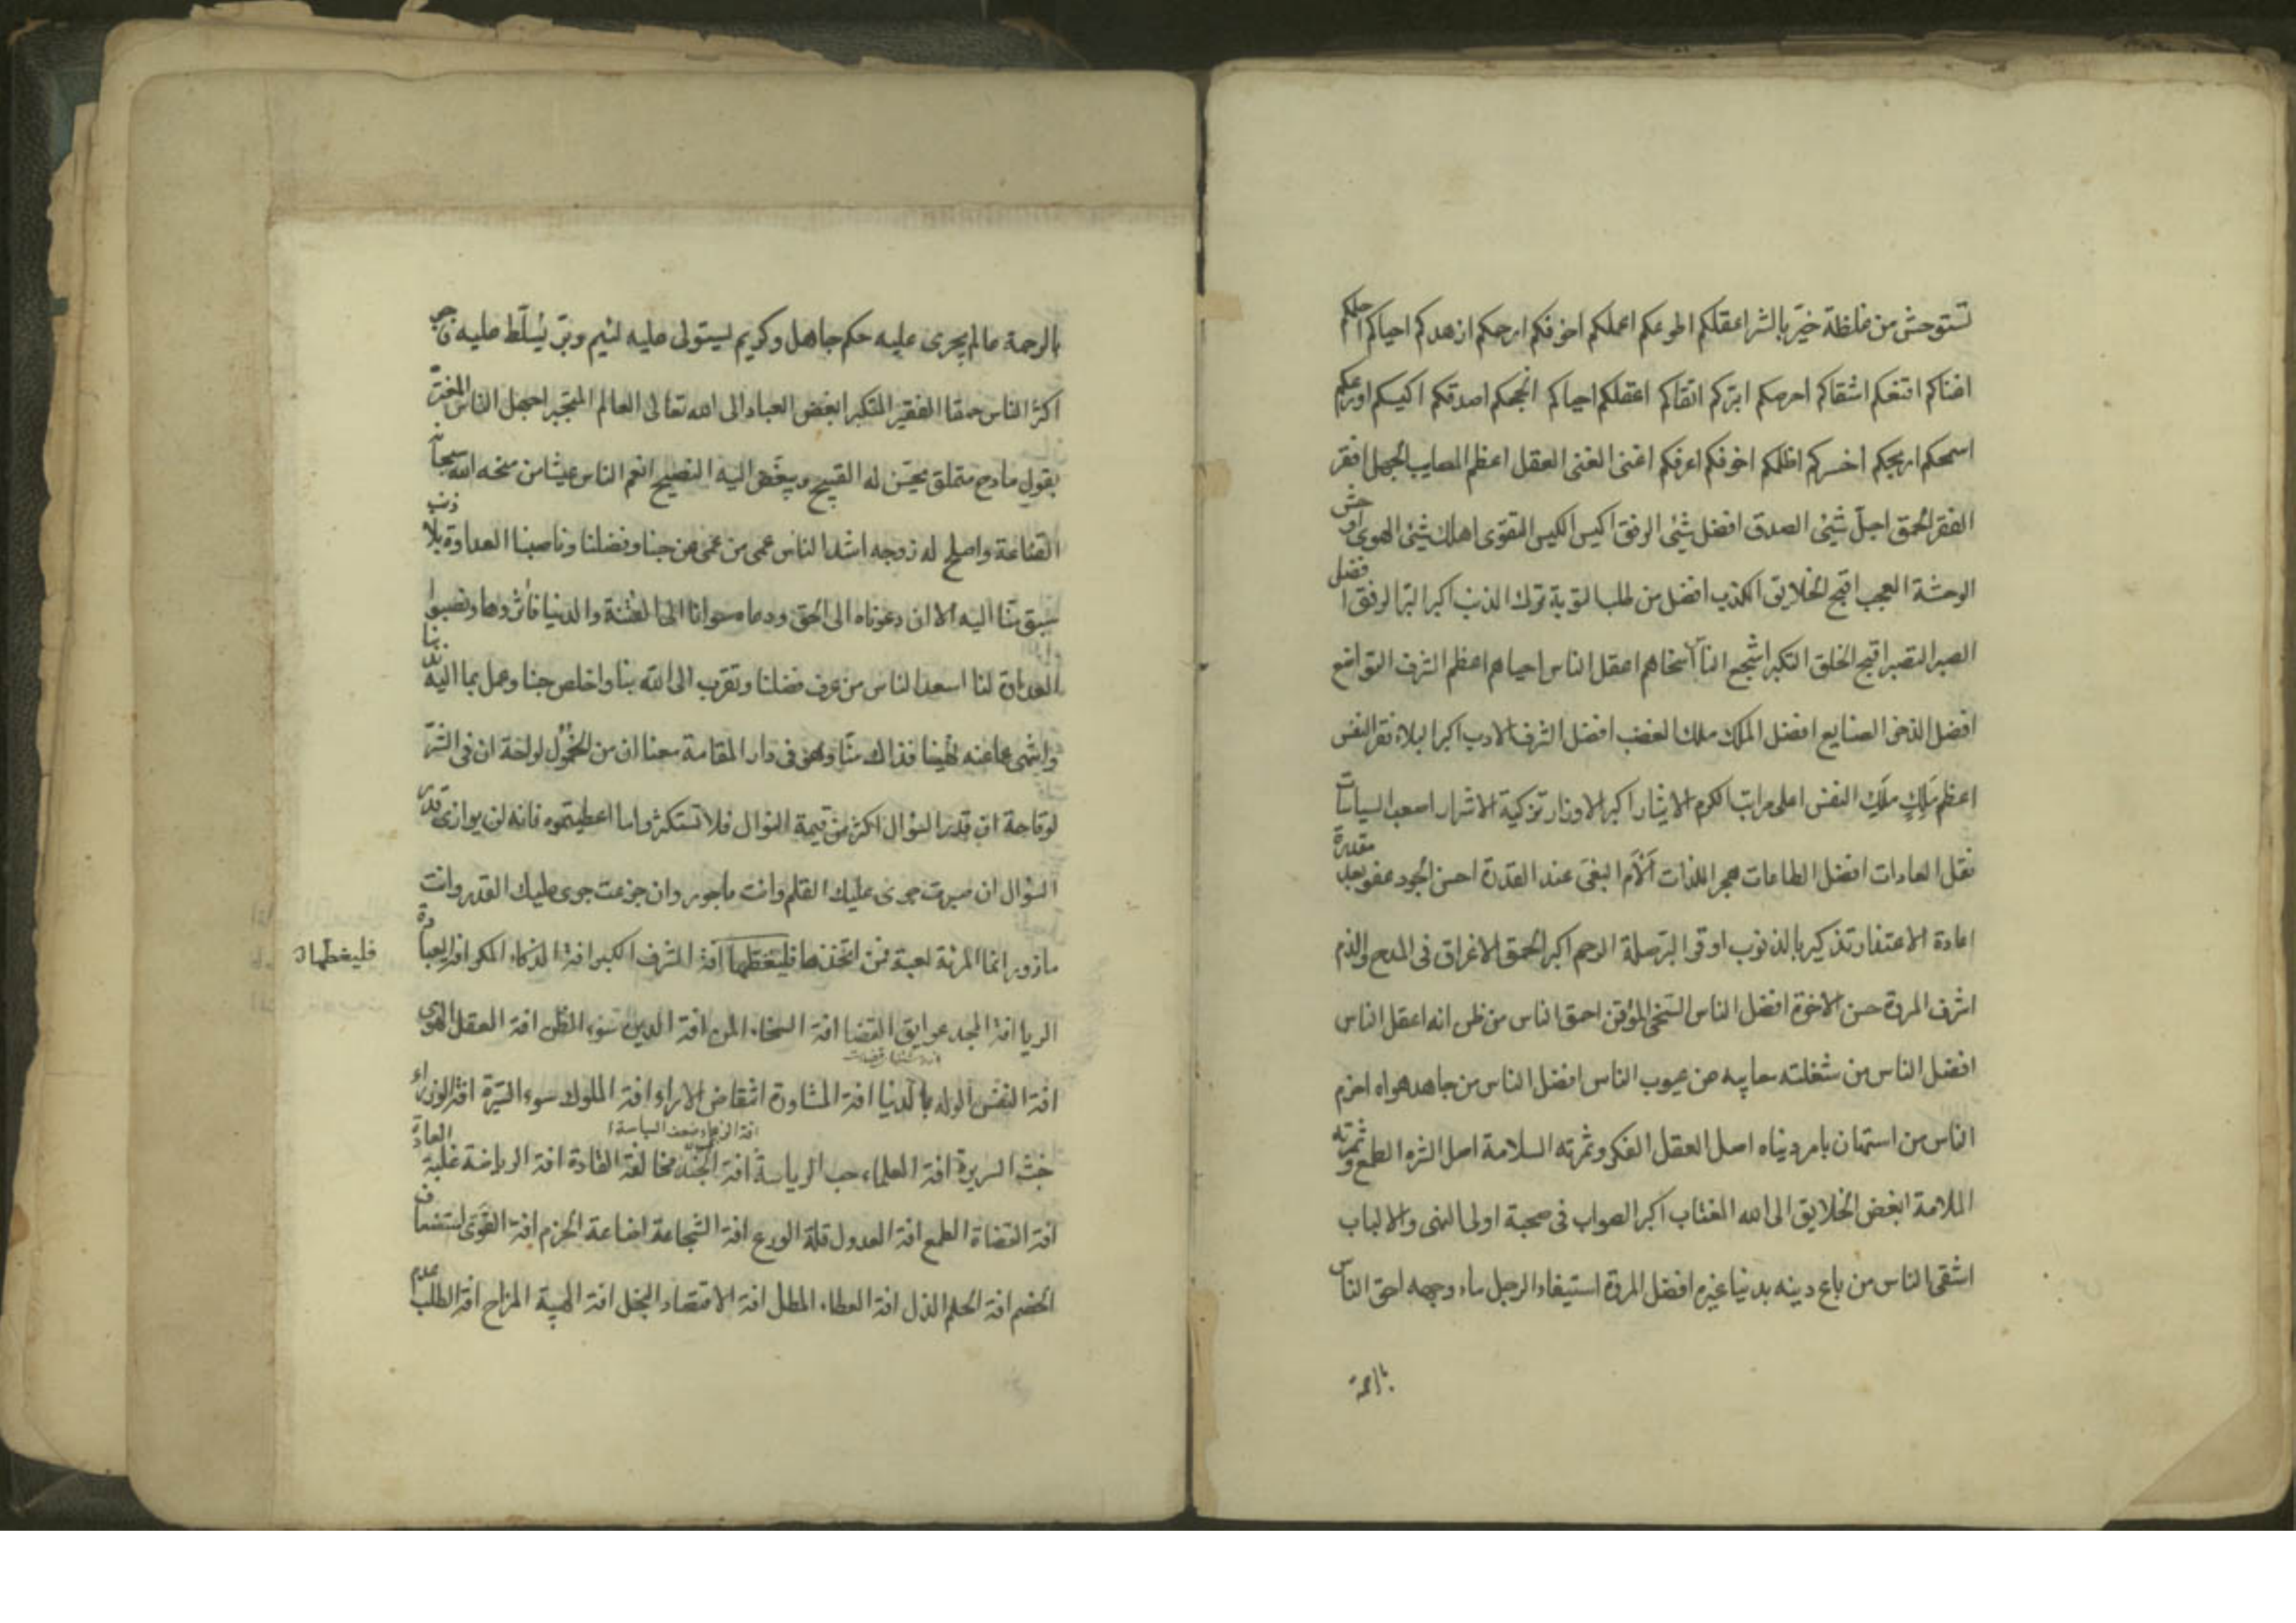 تستوحش من غلظة خيّر بالشر اعقلكم اطوعكم اعملكم اخوفكم ارحمكم ازهدكم احياكم احلمكم
اغناكم اقنعكم اشقاكم احرصكم ابرّكم اتقاكم اعقلكم احياكم انجحكم اصدقكم اكيسكم اورعكم
اسمحكم اربحكم اخسركم اظلمكم اخوفكم اعرفكم اغنى الغنى العقل اعظم المصايب الجهل افقر
الفقر الحمق اجلّ شيئ الصدق افضل شيئ الرفق اكيس الكيس التقوى اهلك شيئ الهوى اوحش
الوحشة العجب اقبح الخلايق الكذب افضل من طلب التوبة ترك الذنب اكبر البر الرفق افضل
الصبر التصبر اقبح الخلق التكبر اشجع الناس اسخاهم اعقل الناس احياهم اعظم الشرف التواضع
افضل الذخر الصنايع افضل الملك ملك الغضب افضل الشرف الادب اكبر البلاء فقر النفس
اعظم مَلِكٍ مَلَِك النفس اعلى مراتب الكرم الايثار اكبر الاوزار تزكية الاشرار اصعب السياسات
نقل العادات افضل الطاعات هجر اللذات ألأم البغى عند القدرة احسن الجود عفو بعد مقدرة
اعادة الاعتذار تذكير بالذنوب اوفى البر صلة الرحم اكبر الحمق الاغراق فى المدح والذم
اشرف المروة حسن الاخوة افضل الناس السخى الموقن احمق الناس من ظن انه اعقل الناس
افضل الناس من شغلته معايبه عن عيوب الناس افضل الناس من جاهد هواه احزم
الناس من استهان بامر دنياه اصل العقل الفكر وثمرته السلامة اصل الشره الطمع وثمرته
الملامة ابغض الخلايق الى الله المغتاب اكبر الصواب فى صحبة اولى النهى والالباب
اشقى الناس من باع دينه بدنيا غيره افضل المروة استبقاء الرجل ماء وجهه احق الناس
بالرحمة
بالرحمة عالم يجرى عليه حكم جاهل وكريم يستولى عليه لئيم وبرّ يُسلّط عليه فاجر
اكثر الناس حمقا الفقير المتكبر ابغض العباد الى الله تعالى العالم المتجبر اجهل الناس المغترّ
بقول مادح متملق يحسّن له القبيح ويبغّض اليه النصيح انعم الناس عيشا من منحه الله سبحانه
القناعة واصلح له زوجه اشد الناس عمى من عمى عن حبنا وفضلنا وناصبنا العداوة بلا ذنب
سبق منّا اليه الا ان دعوناه الى الحق ودعاه سوانا الى الفتنة والدنيا فآثروها ونصبوا
العداوة لنا اسعد الناس من عرف فضلنا وتقرب الى الله بنا واخلص حبنا وعمل بما اليه ندبنا
وانتهى عما عنه نهينا فذاك منّا وهو فى دار المقامة معنا ان من الخمول لراحة ان فى الشرّ
لوقاحة ان قدر السؤال اكثر من قيمة النوال فلا تستكثروا ما اعطيتموه فانه لن يوازى قدر
السؤال ان صبرت جرى عليك القلم وانت ماجور وان جزعت جرى عليك القدر وانت
مازور انما المرئة لعبة فمن اتخذها فليغطها آفة الشرف الكبر افة الذكاء المكر افة العبادة
فليغطها
الريا افة المجد عوايق القضا افة السخاء المن افة الدين سوء الظن افة العقل الهوى
افة النفس الوله بالدنيا افة المشاورة انتقاض الاراء افة الملوك سوء السيرة افة الوزراء
افة الزعماء ضعف السياسة
خبث السريرة افة العلماء حب الرياسة افة الجند مخالفة القادة افة الرياضة غلبة العادة
افة القضاة الطمع افة العدول قلة الورع افة الشجاعة اضاعة الحزم افة القوى استضعاف
الخصم افة الحلم الذل افة العطاء المطل افة الاقتصاد البخل افة الهيبة المزاح افة الطلب عدم